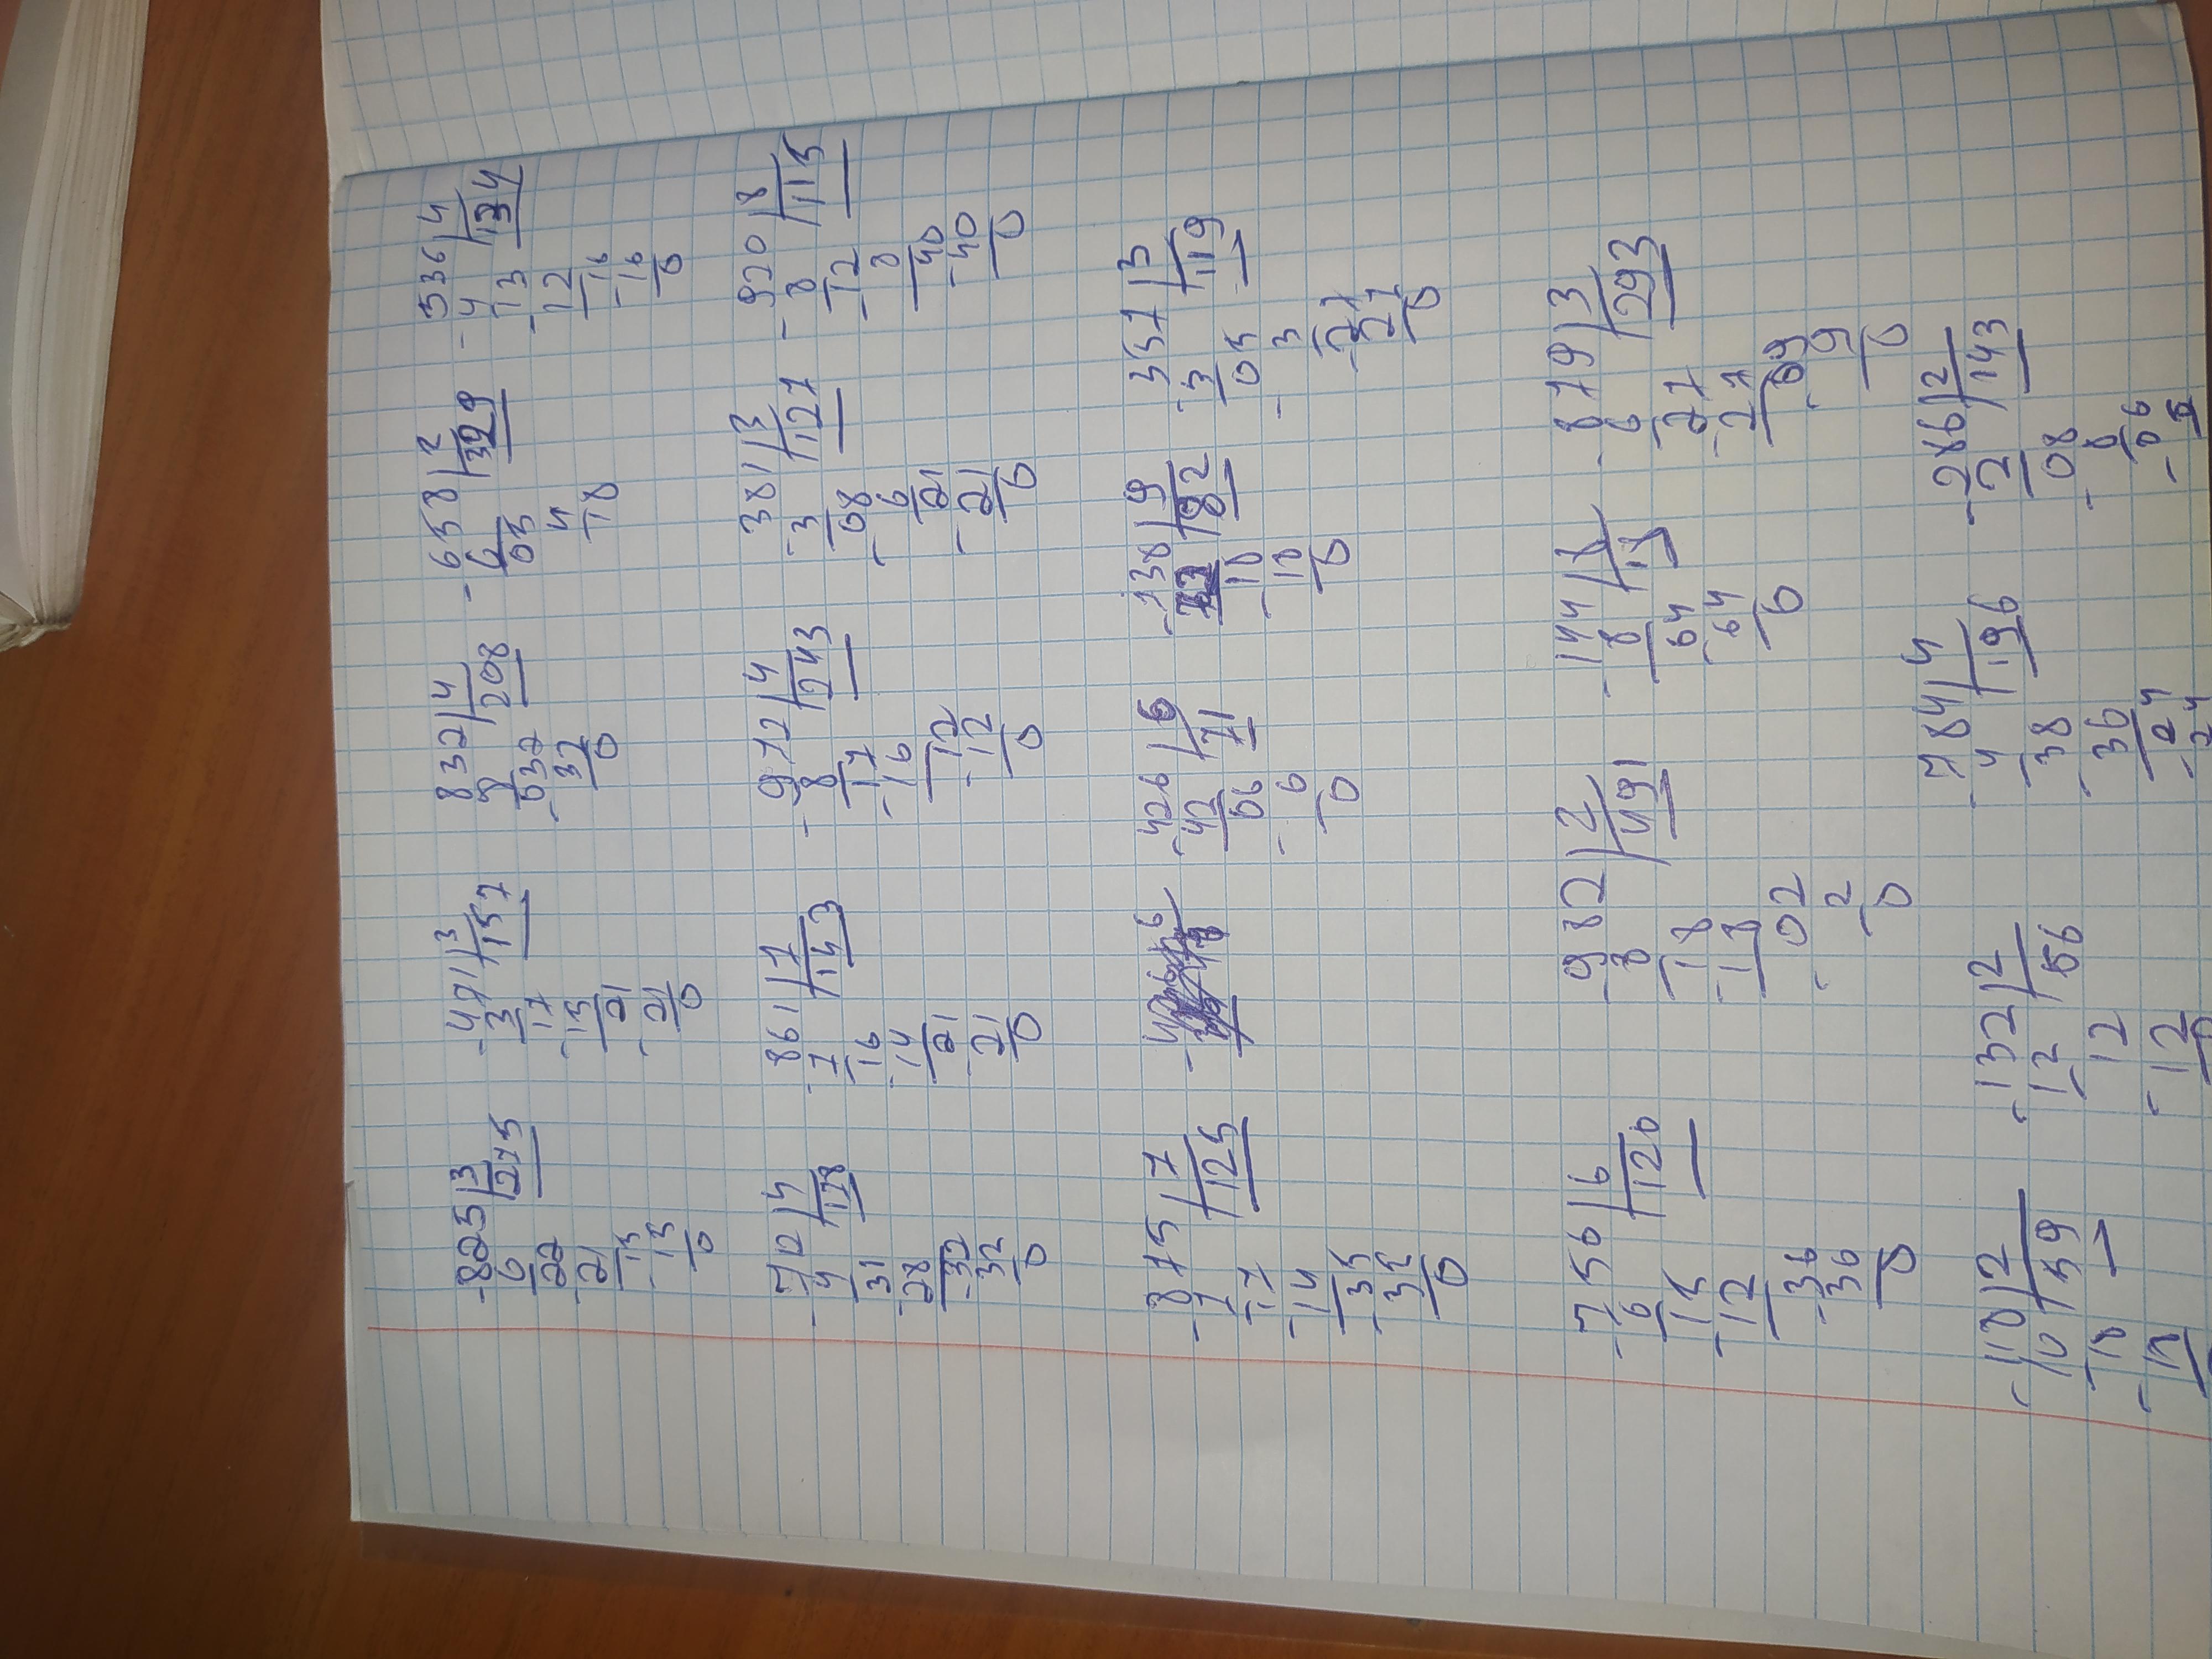 -825 |3 -471 |3 832 |4 -658 |2 -536 |4
6 |275 3 |157 8 |208 6 |329 4 |134
-22 -17 -032 05 -13
21 15 32 4 12
-15 -21 0 18 -16
15 21 16
0 0 0
-712 |4 -861 |7 -972 |4 -381 |3 -920 |8
4 |178 7 |143 8 |243 3 |127 8 |115
-31 -16 -17 -08 -12
28 14 16 6 8
-32 -21 -12 -21 -40
32 21 12 21 40
0 0 0 0 0
-875 |7 -426 |6 -738 |9 -357 |3
7 |125 42 |71 72 |82 3 |119
-17 -06 -18 -05
14 6 18 3
-35 0 0 -27
35 27
0 0
-756 |6 -982 |2 -144 -879 |3
6 |120 8 |491 8 6 |293
-15 -18 -64 -27
12 18 64 27
-36 -02 0 -09
36 2 9
0 0 0
-118 |2 -132 |2 -784 |4 -286 |2
10 |59 12 |56 4 |196 2 |143
-18 -12 -38 -08
18 12 36 8
0 -24 -06
24 6